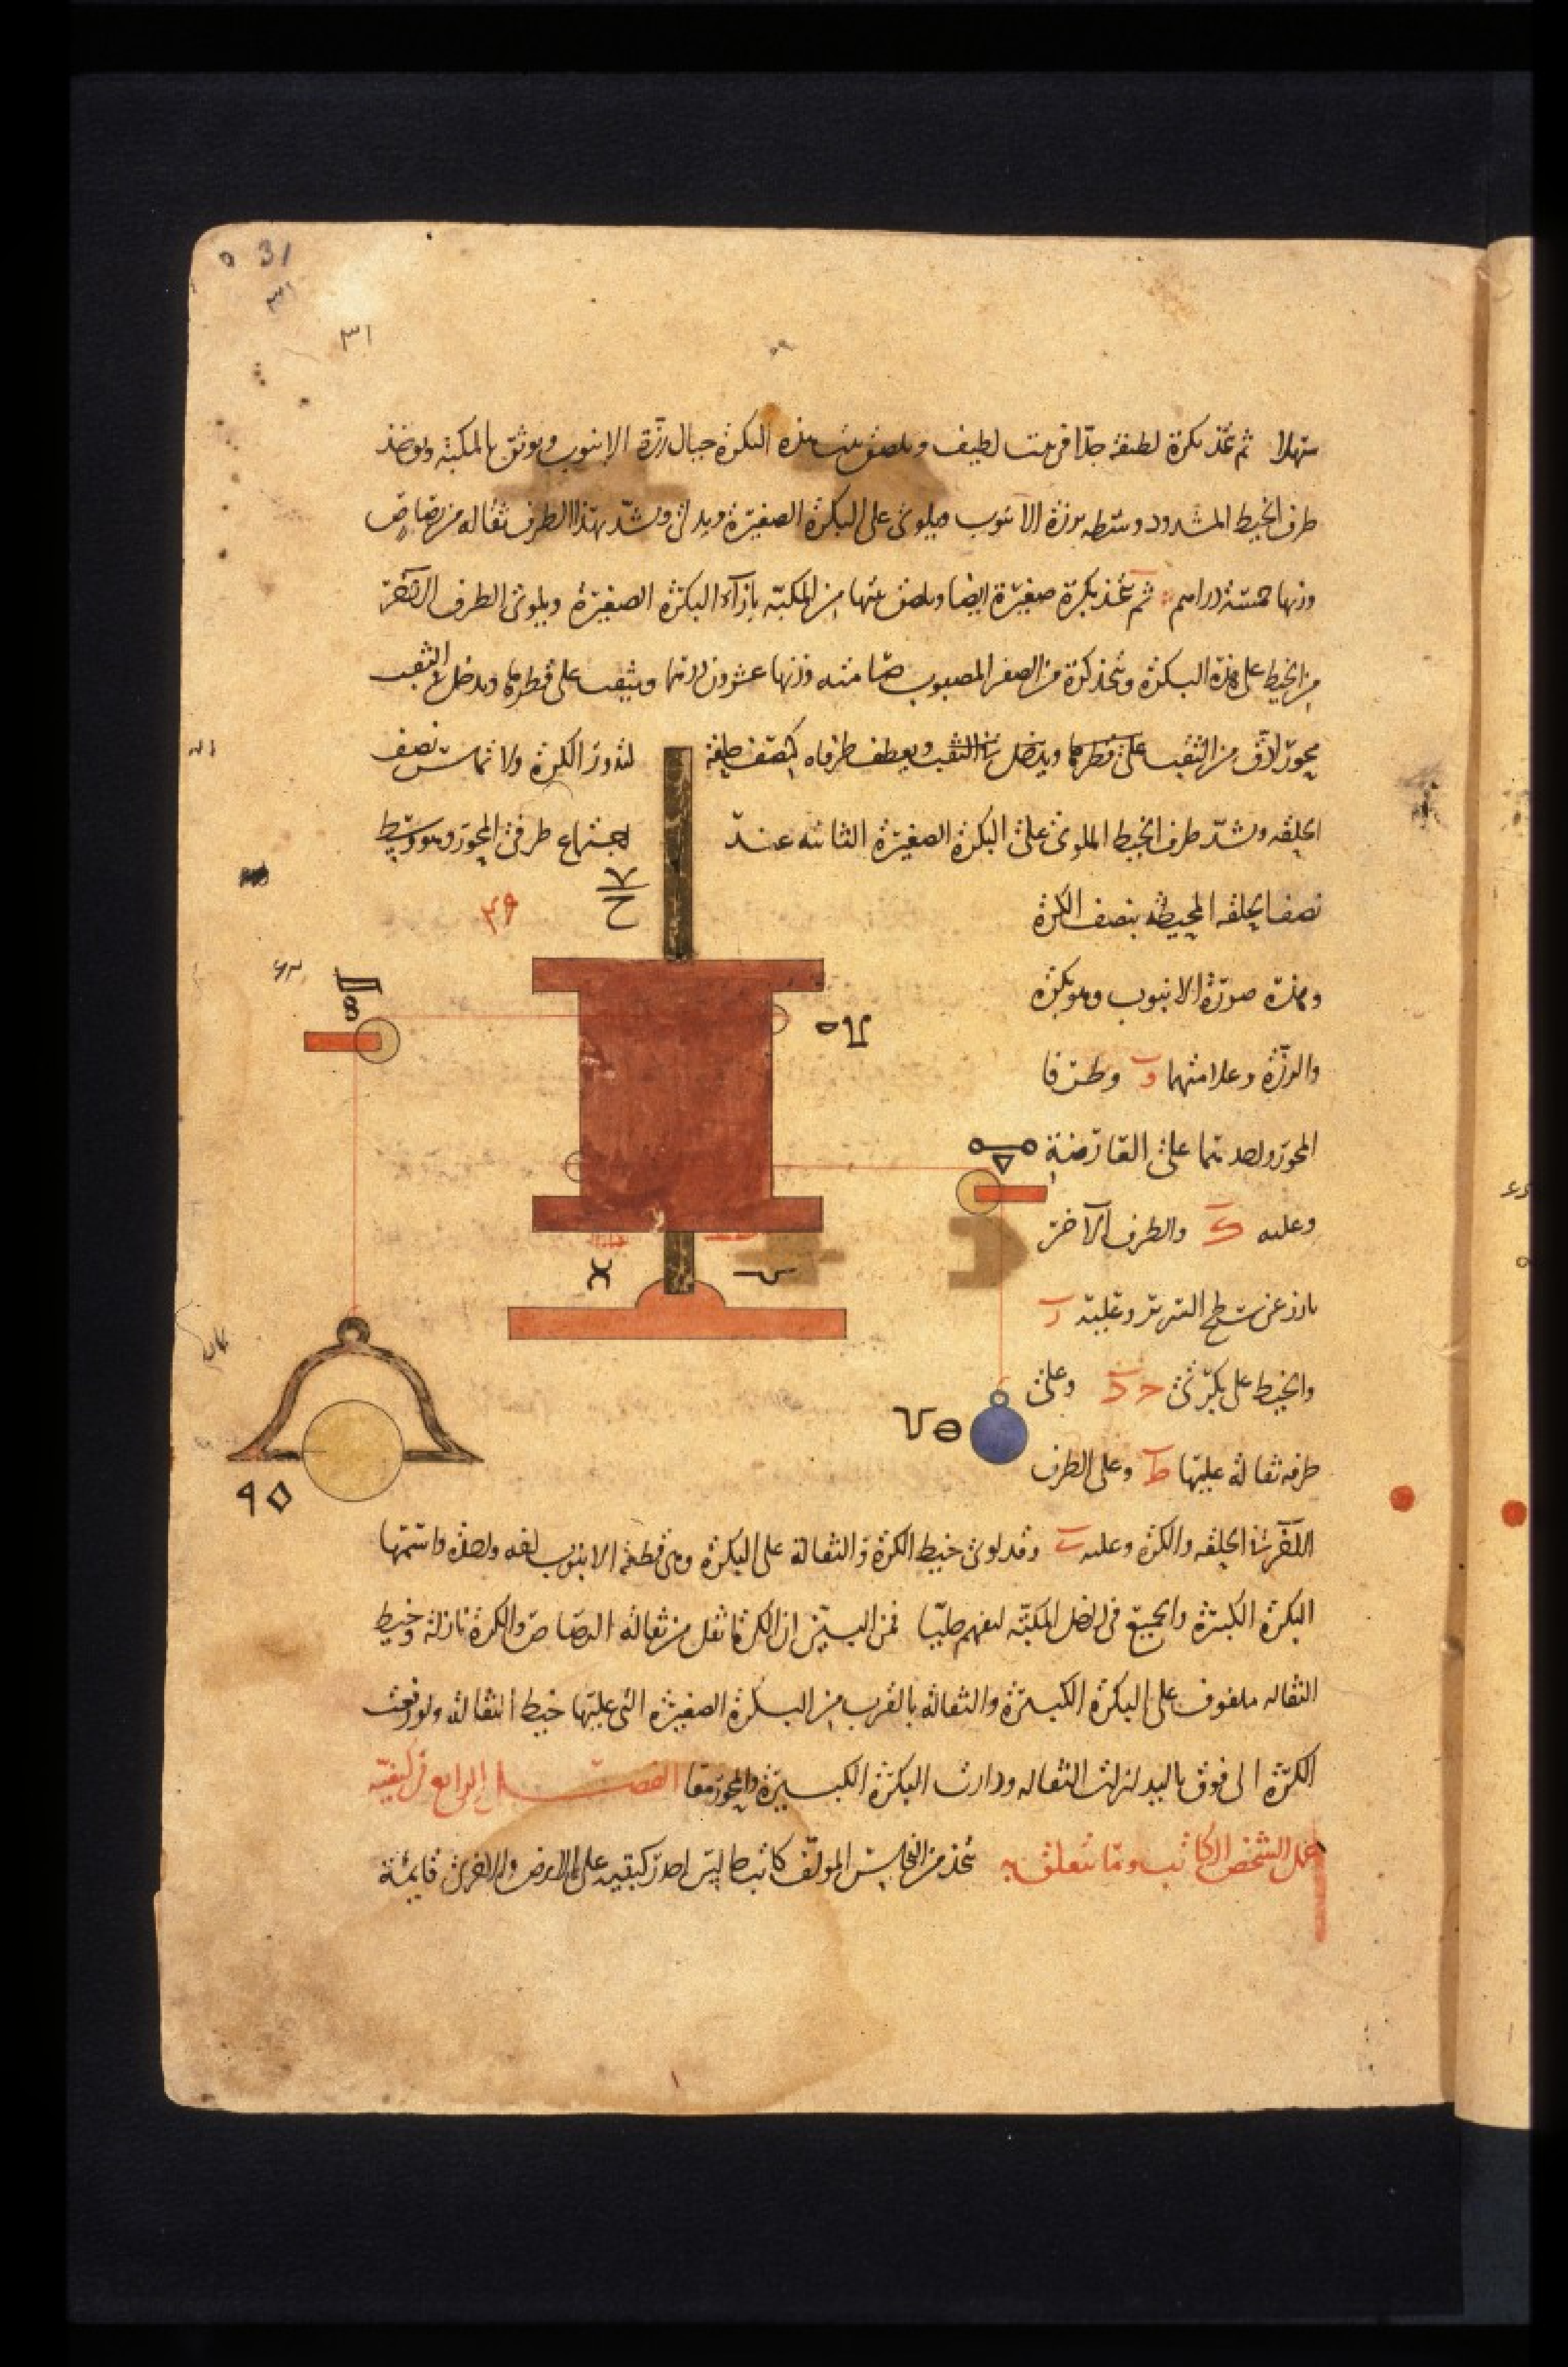 31
٣١
٣١
سهلا ثم تتخذ بكرة لطيفة جدا في بيت لطيف ويلصق بيت هذه البكرة حيال رزة الانبوب ويوثق بالمكبة ويوخذ
طرف الخيط المشدود وسطه برزة الانبوب ويلوى على البكرة الصغيرة ويدلى ويشد بهذا الطرف ثقاله من رصاص
وزنها خمسة دراهم ثم تتخذ بكرة صغيرة ايضا ويلصق بيتها من المكبه بازاء البكرة الصغيرة ويلوى الطرف الاخر
من الخيط على هذه البكرة وتتخذ كرة من الصفر المصبوب صامته وزنها عشرون درهما ويثقب على قطرها ويدخل في الثقب
محور ادق من الثقب على قطرها ويدخل في الثقب ويعطف طرفاه كنصف حلقة لتدور الكرة ولا تماس نصف
الحلقه ويشد طرف الخيط الملوى على البكرة الصغيرة الثانيه عند اجتماع طرفى المحور وهو وسط
نصف الحلقه المحيطه بنصف الكرة
وهذه صورة الانبوب وهو بكرة
والرزة وعلامتهما و وطرفا
المحور واحدهما على العارضة
وعليه ك والطرف الآخر
بارز عن سطح السرير وعليه
والخيط على بكرتى ح د وعلى
طرفه ثقالة عليها ط وعلى الطرف
الآخر الحلقه والكرة وعليه وقد لوى خيط الكرة والثقالة على البكرة وهى قطعة الانبوب لفه واحدة واسمها
البكرة الكبيرة والجميع في داخل المكبة ليفهم جليا فمن البين ان الكرة اثقل من ثقالة الرصاص والكرة نازلة وخيط
الثقاله ملفوف على البكرة الكبيرة والثقالة بالقرب من البكرة الصغيرة التى عليها خيط الثقالة ولو رفعت
الكرة الى فوق باليد لنزلت الثقاله ودارت البكرة الكبيرة والمحور معا الفصل الرابع في كيفية
عمل الشخص الكاتب وما يتعلق به يتخذ من النحاس المولف كاتب جالس احدى ركبتيه على الارض والاخرى قايمة